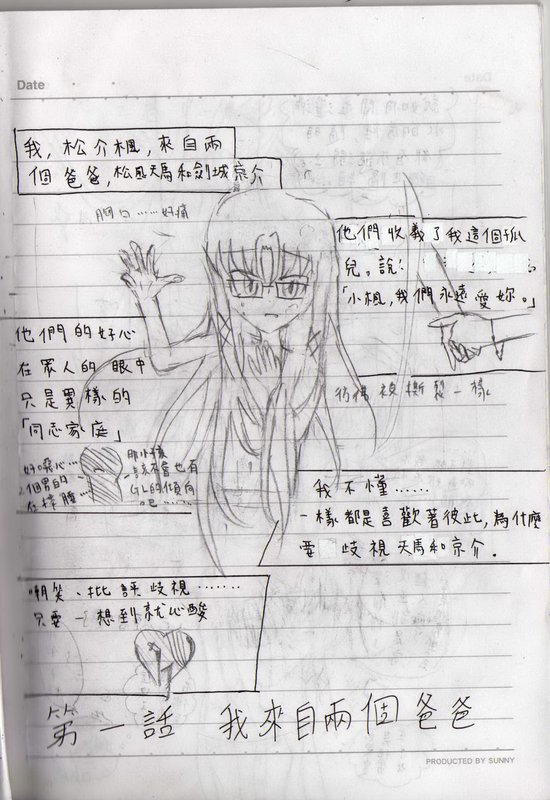 Date
我，松介楓，來自兩
個爸爸，松風天馬和劍城京介
胸口……好痛
他們收養了我這個孤
兒。說：
「小楓，我們永遠愛妳。」
他們的好心
在眾人的眼中
只是異樣的
「同志家庭」
彷彿被撕裂一樣
好噁心…
那小孩
該不會也有
2個男的
GL的傾向
在撐腫…
吧……
我不懂……
一樣都是喜歡著彼此，為什麼
要歧視天馬和京介．
嘲笑、批評歧視……
只要一想到就心酸
第一話 我來自兩個爸爸
PRODUCED BY SUNNY